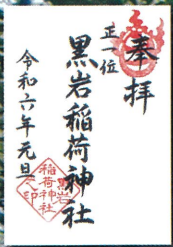 奉拝
正一位
黒岩稲荷神社
令和六年元旦
黒岩
稲荷神社
之印